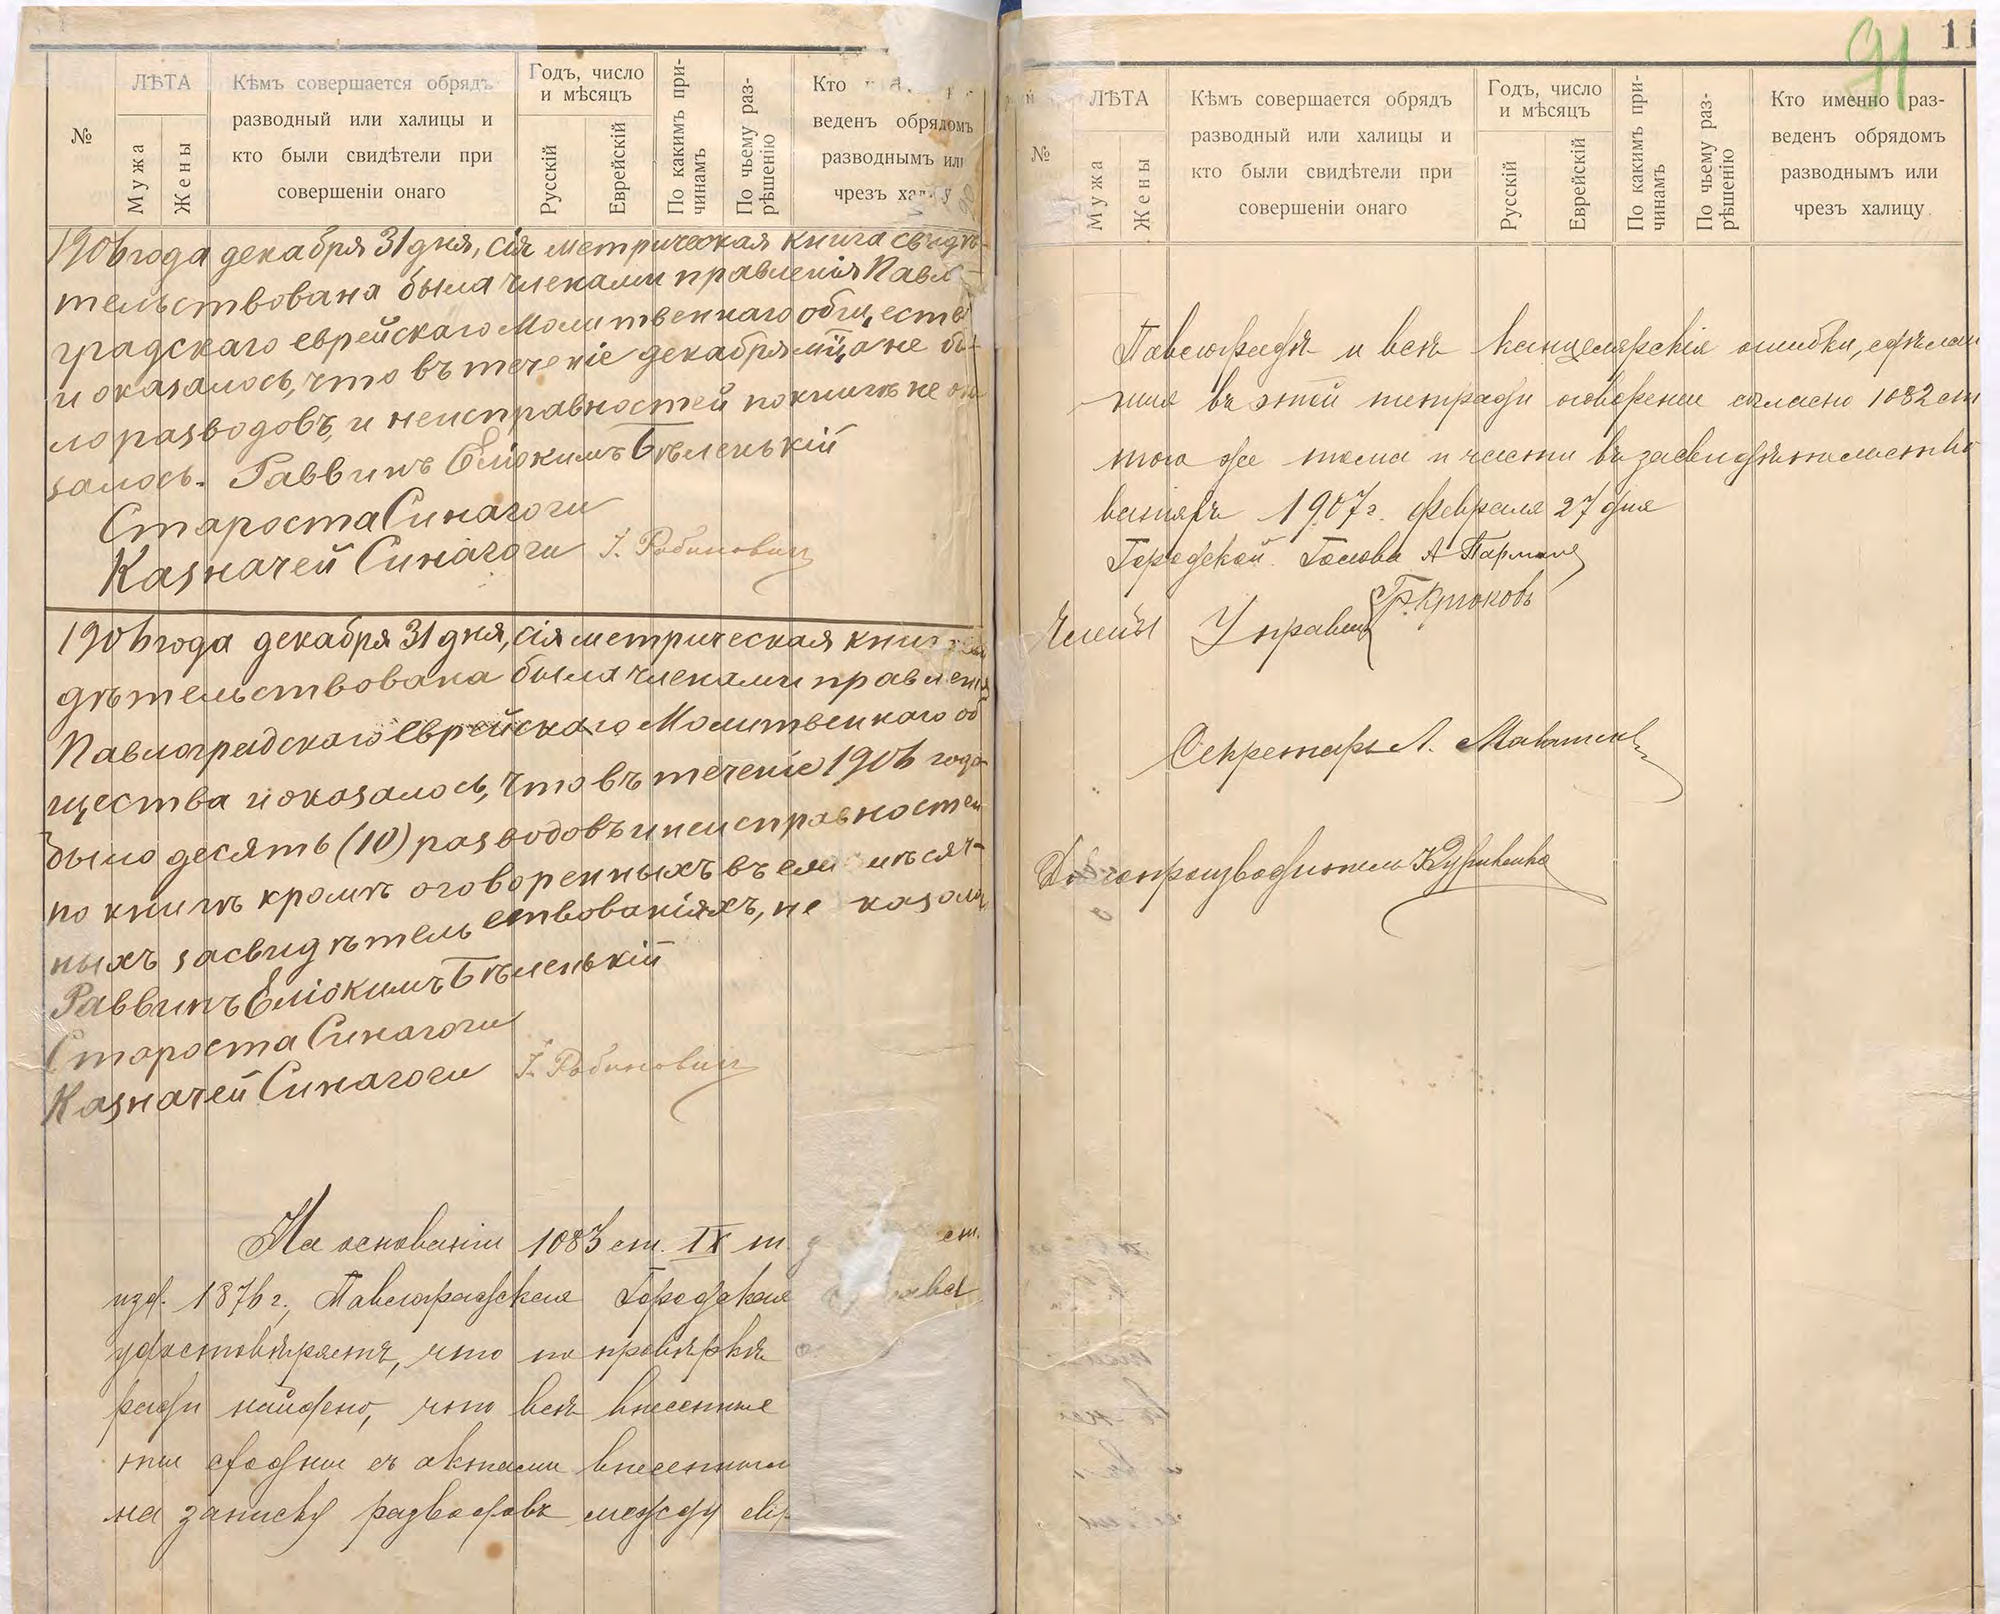 №
ЛѢТА
Мужа
Жены
Кѣмъ совершается обрядъ
разводный или халицы и
кто были свидѣтели при
совершеніи онаго
Годъ, число
и мѣсяцъ
Русскій
Еврейскій
По какимъ при-
чинамъ
По чьему раз-
рѣшенію
Кто
веденъ обрядомъ
разводнымъ или
чрезъ халицу
1906 года декабря 31 дня, сія метрическая книга свидѣ-
тельствована была членами правленія Павло-
градскаго еврейскаго Молитвеннаго общества
и оказалось, что въ теченіе декабря мца не бы-
ло разводовъ, и неисправностей по книгѣ не ока
залось. Раввинъ Еліокимъ Бѣленькій
Староста Синагоги
Казначей Синагоги І. Рабиновичъ
1906 года декабря 31 дня, сія метрическая книга сви
дѣтельствована была членами правленія
Павлоградскаго еврейскаго Молитвеннаго об
щества и оказалось, что въ теченіе 1906 года
было десять (10) разводовъ и неисправностей
по книгѣ кромѣ оговоренныхъ въ ея мѣсяч-
ныхъ засвидѣтельствованіяхъ, не казало
Раввинъ Еліокимъ Бѣленькій
Староста Синагоги
Казначей Синагоги І. Рабиновичъ
На основаніи 1083 ст. IX т. ст.
изд. 1876 г., Павлоградская Городская Управа
удостовѣряетъ, что по провѣркѣ
ради найдено, что всѣ внесенные
ни сходны съ актами внесенными
на записку разводовъ между евр.
91
11
№
ЛѢТА
Мужа
Жены
Кѣмъ совершается обрядъ
разводный или халицы и
кто были свидѣтели при
совершеніи онаго
Годъ, число
и мѣсяцъ
Русскій
Еврейскій
По какимъ при-
чинамъ
По чьему раз-
рѣшенію
Кто именно раз-
веденъ обрядомъ
разводнымъ или
чрезъ халицу
Павлоградѣ и всѣ канцелярскія ошибки, сдѣлан
ныя въ этой тетради оговорены согласно 1082 ст
того же тома и части въ засвидѣтельство
ваніяхъ 1907 г. февраля 27 дня
Городской Голова А
Члены Управы Крюковъ
Секретарь Л.
Дѣлопроизводитель